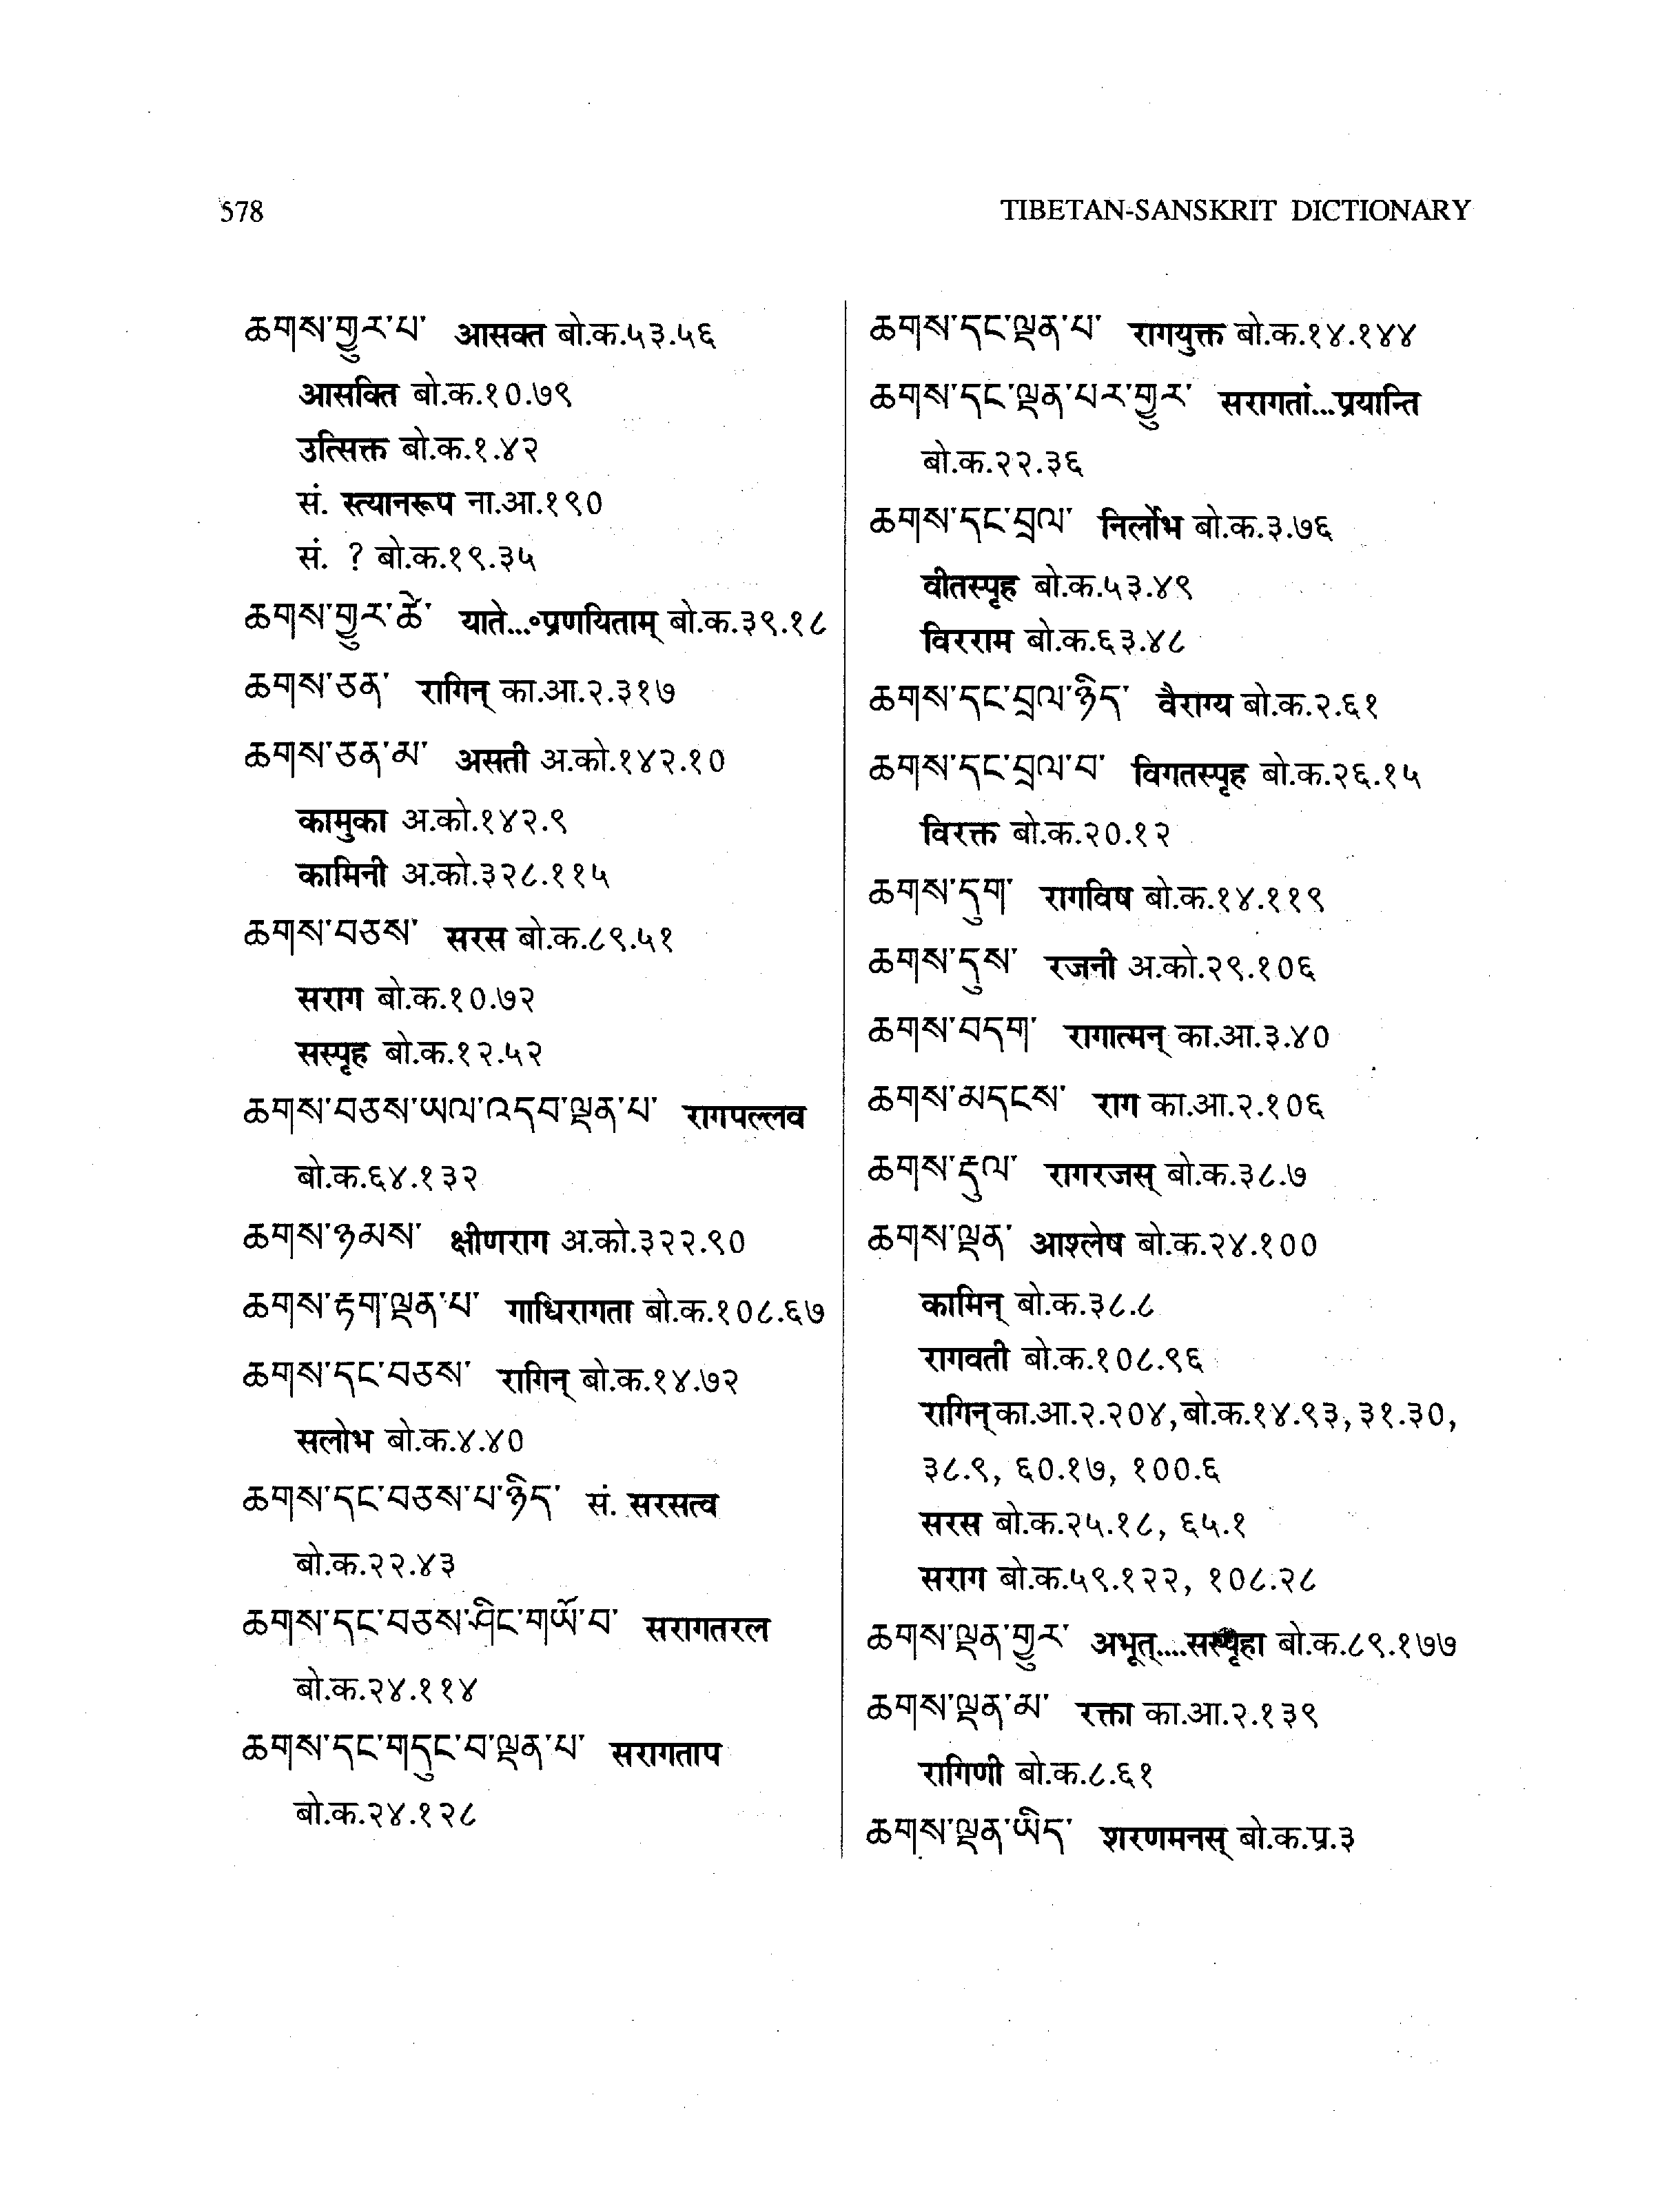 578
TIBETAN-SANSKRIT DICTIONARY
ཆགས་གྱུར་པ་ आसक्त बो.क.५३.५६
आसक्ति बो.क.१०.७९
उत्सिक्त बो.क.१.४२
सं. स्त्यानरूप ना.आ.१९०
सं. ? बो.क.१९.३५
ཆགས་གྱུར་ཚེ་ याते...॰प्रणयिताम् बो.क.३९.१८
ཆགས་ཅན་ रागिन् का.आ.२.३१७
ཆགས་ཅན་མ་ असती अ.को.१४२.१०
कामुका अ.को.१४२.९
कामिनी अ.को.३२८.११५
ཆགས་བཅས་ सरस बो.क.८९.५१
सराग बो.क.१०.७२
सस्पृह बो.क.१२.५२
ཆགས་བཅས་ཡལ་འདབ་ལྡན་པ་ रागपल्लव
बो.क.६४.१३२
ཆགས་ཉམས་ क्षीणराग अ.को.३२२.९०
ཆགས་རྟག་ལྡན་པ་ गाधिरागता बो.क.१०८.६७
ཆགས་དང་བཅས་ रागिन् बो.क.१४.७२
सलोभ बो.क.४.४०
ཆགས་དང་བཅས་པ་ཉིད་ सं. सरसत्व
बो.क.२२.४३
ཆགས་དང་བཅས་ཤིང་གཡོ་བ་ सरागतरल
बो.क.२४.११४
ཆགས་དང་གདུང་བ་ལྡན་པ་ सरागताप
बो.क.२४.१२८
ཆགས་དང་ལྡན་པ་ रागयुक्त बो.क.१४.१४४
ཆགས་དང་ལྡན་པར་གྱུར་ सरागतां...प्रयान्ति
बो.क.२२.३६
ཆགས་དང་བྲལ་ निर्लोभ बो.क.३.७६
वीतस्पृह बो.क.५३.४९
विरराम बो.क.६३.४८
ཆགས་དང་བྲལ་ཉིད་ वैराग्य बो.क.२.६१
ཆགས་དང་བྲལ་བ་ विगतस्पृह बो.क.२६.१५
विरक्त बो.क.२०.१२
ཆགས་དུག་ रागविष बो.क.१४.११९
ཆགས་དུས་ रजनी अ.को.२९.१०६
ཆགས་བདག་ रागात्मन् का.आ.३.४०
ཆགས་མདངས་ राग का.आ.२.१०६
ཆགས་རྡུལ་ रागरजस् बो.क.३८.७
ཆགས་ལྡན་ आश्लेष बो.क.२४.१००
कामिन् बो.क.३८.८
रागवती बो.क.१०८.९६
रागिन् का.आ.२.२०४, बो.क.१४.९३, ३१.३०,
३८.९, ६०.१७, १००.६
सरस बो.क.२५.१८, ६५.१
सराग बो.क.५९.१२२, १०८.२८
ཆགས་ལྡན་གྱུར་ अभूत्....सस्पृहा बो.क.८९.१७७
ཆགས་ལྡན་མ་ रक्ता का.आ.२.१३९
रागिणी बो.क.८.६१
ཆགས་ལྡན་ཡིད་ शरणमनस् बो.क.प्र.३